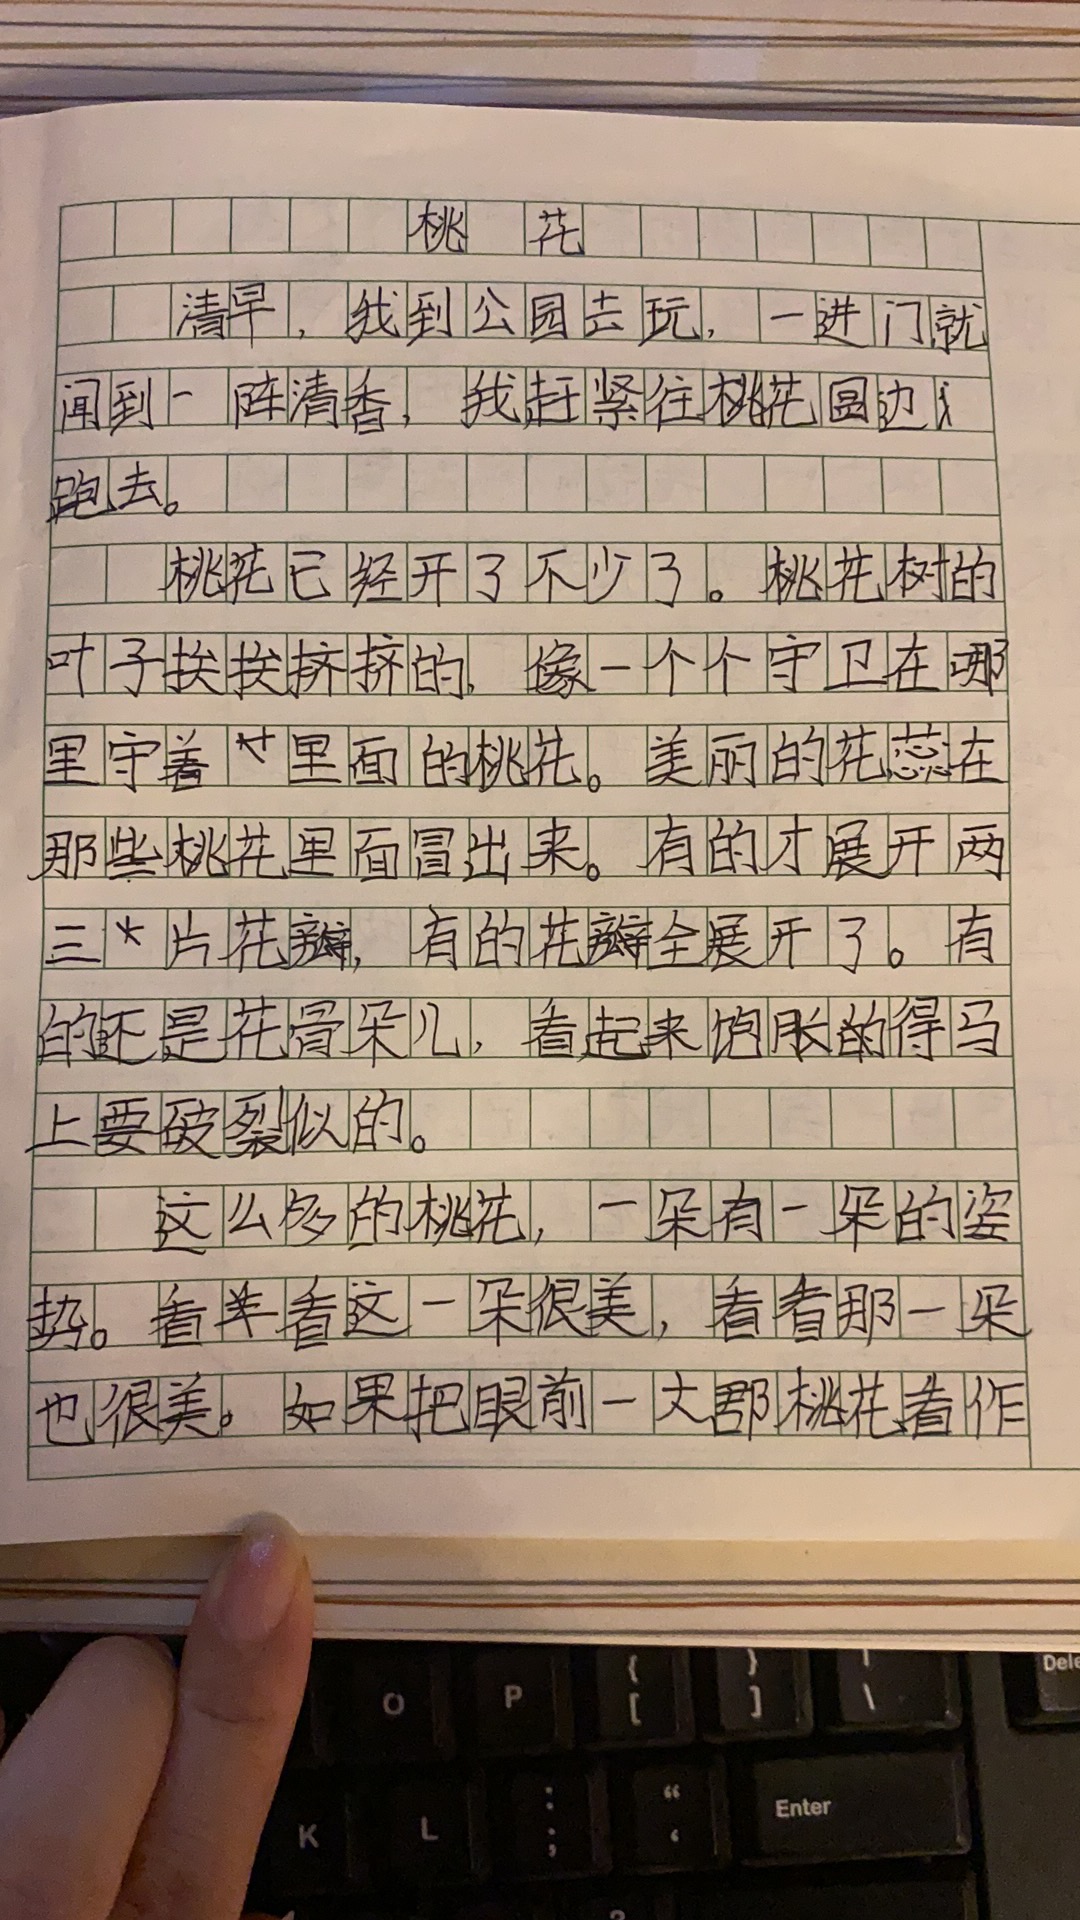 桃 花
清早，我到公园去玩，一进门就
闻到一阵清香，我赶紧往桃花圆边
跑去。
桃花已经开了不少了。桃花树的
叶子挨挨挤挤的，像一个个守卫在哪
里守着里面的桃花。美丽的花蕊在
那些桃花里面冒出来。有的才展开两
三片花瓣，有的花瓣全展开了。有
的还是花骨朵儿，看起来饱胀的得马
上要破裂似的。
这么多的桃花，一朵有一朵的姿
势。看看这一朵很美，看看那一朵
也很美。如果把眼前一大郡桃花看作
O
P
{
[
}
]
\
Dele
K
L
:
;
“
‘
Enter